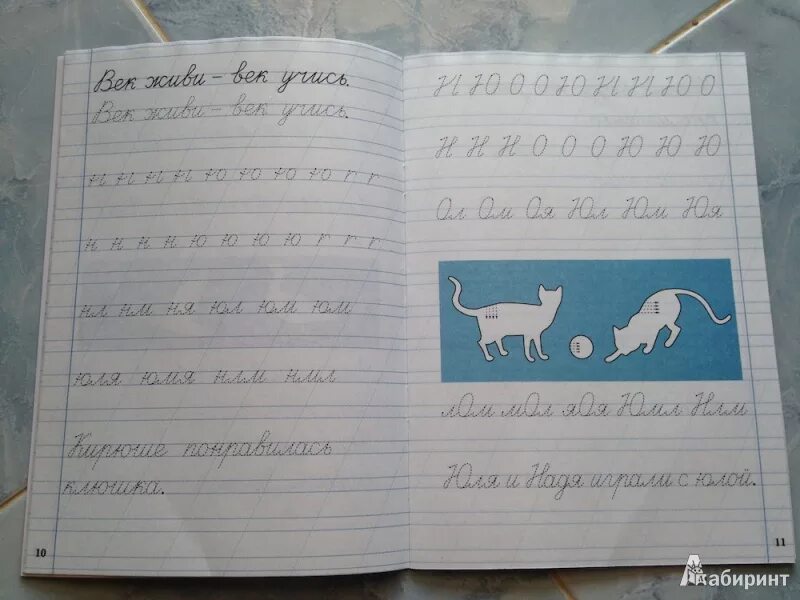 Век живи – век учись.
Век живи – век учись.
н н н н ю ю ю ю г г
н н н н ю ю ю ю г г г
нл нм ня юл юм юм
юля юмя нлм нмл
Кирюше понравилась
клюшка.
10
Н Ю О О Ю Н Н Ю О
Н Н Н О О О Ю Ю Ю
Ол Ом Оя Юл Юм Юя
лОм мОл яОя Юмл Нлм
Юля и Надя играли с юлой.
11
Лабиринт